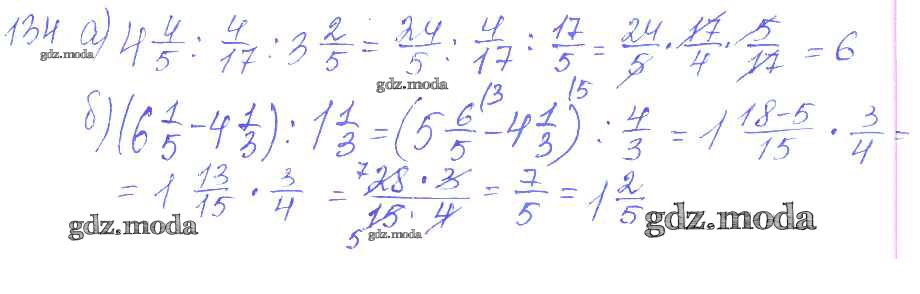 134 а) 4 4/5 : 4/17 : 3 2/5 = 24/5 : 4/17 : 17/5 = 24/5 · 17/4 · 5/17 = 6
gdz.moda
gdz.moda
б) (6 1/5 - 4 1/3) : 1 1/3 = (5 6/5 (3 - 4 1/3 (5) : 4/3 = 1 18-5/15 · 3/4 =
= 1 13/15 · 3/4 = 7 28 · 3/15 · 4 5 = 7/5 = 1 2/5
gdz.moda
gdz.moda
gdz.moda